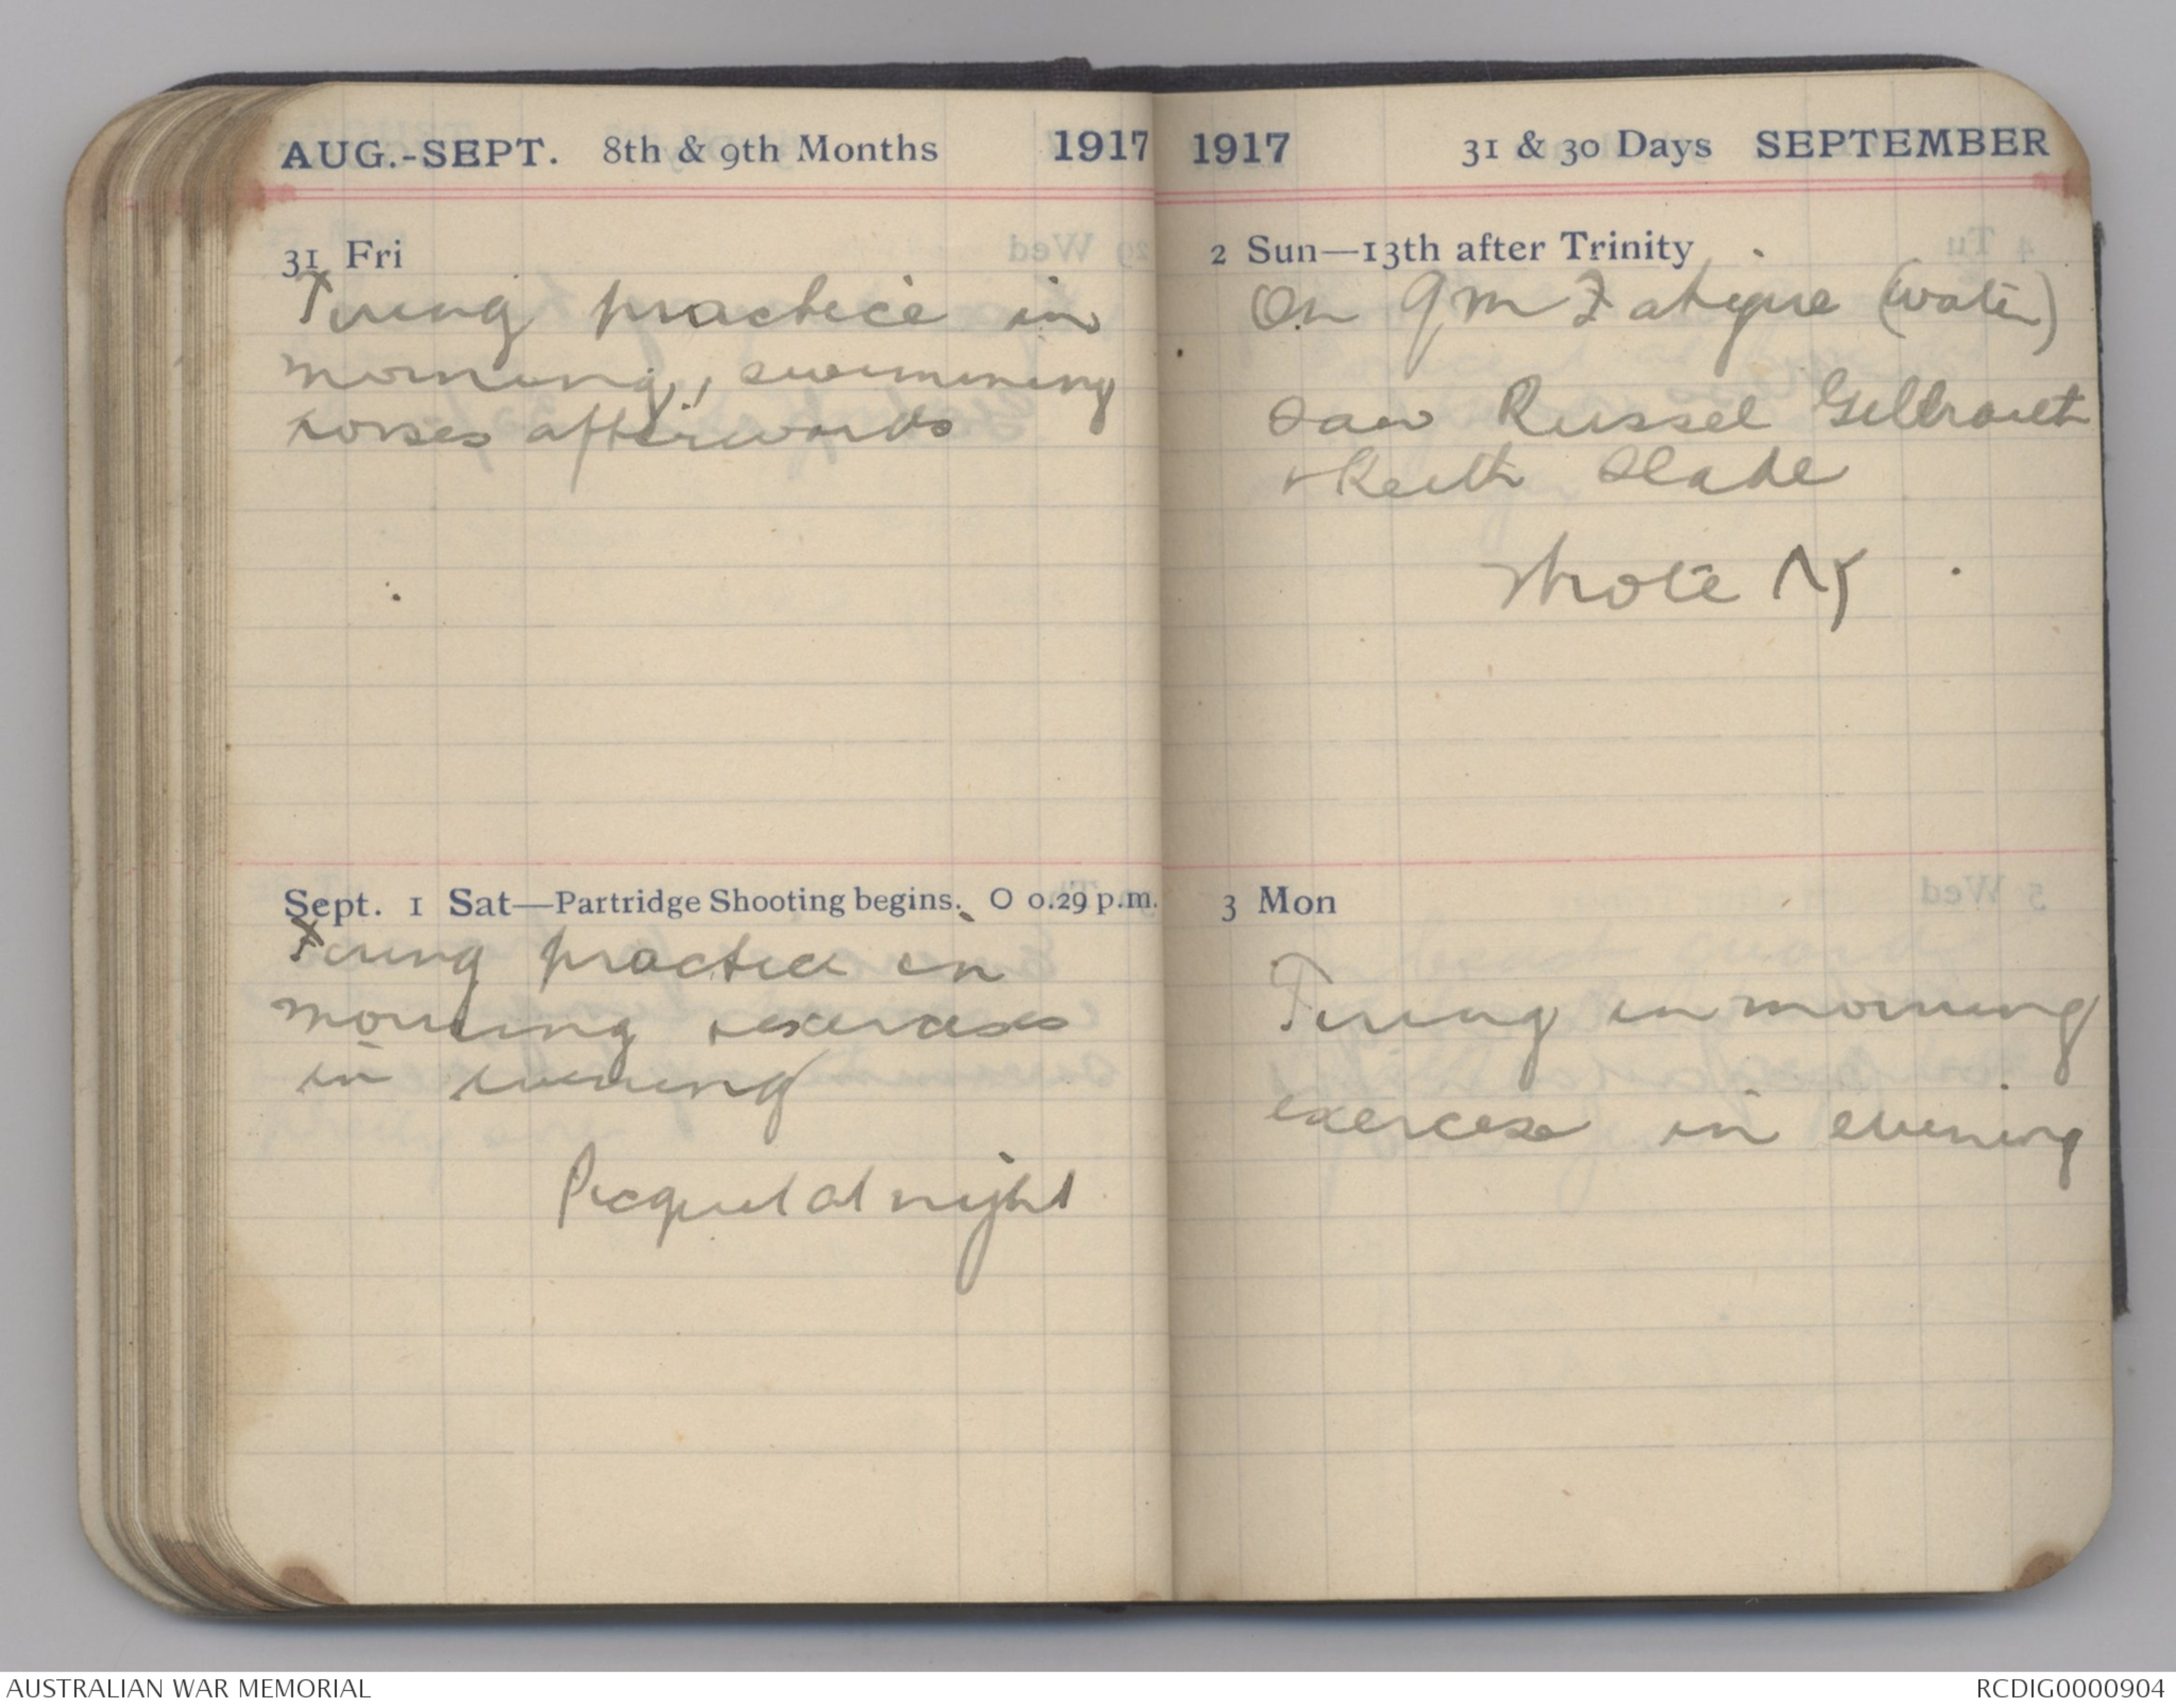 AUG.-SEPT. 8th & 9th Months 1917
31 Fri
Firing practice in
morning, swimming
horses afterwards
Sept. 1 Sat—Partridge Shooting begins. O 0.29 p.m.
Firing practice in
morning & exercises
in evening
Picquet at night
1917 31 & 30 Days SEPTEMBER
2 Sun—13th after Trinity
On QM Fatigue (water)
Saw Russel
& Keith Slade
Wrote
3 Mon
Firing in morning
exercise in evening
AUSTRALIAN WAR MEMORIAL
RCDIG0000904